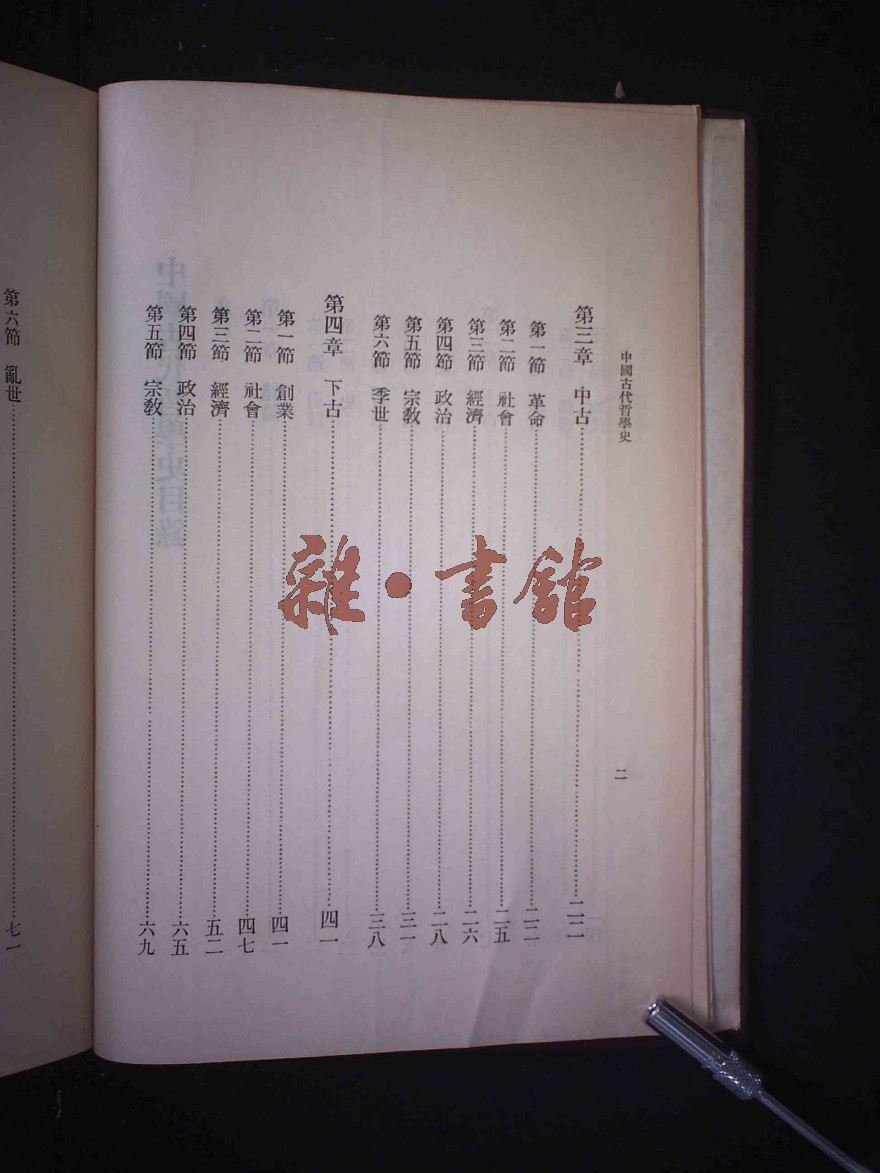 中國古代哲學史
二
第三章　中古……二二
第一節　革命……二二
第二節　社會……二五
第三節　經濟……二六
第四節　政治……二八
第五節　宗教……三一
第六節　季世……三八
第四章　下古……四一
第一節　創業……四一
第二節　社會……四七
第三節　經濟……五二
第四節　政治……六五
第五節　宗教……六九
第六節　亂世……七一
雜·書館